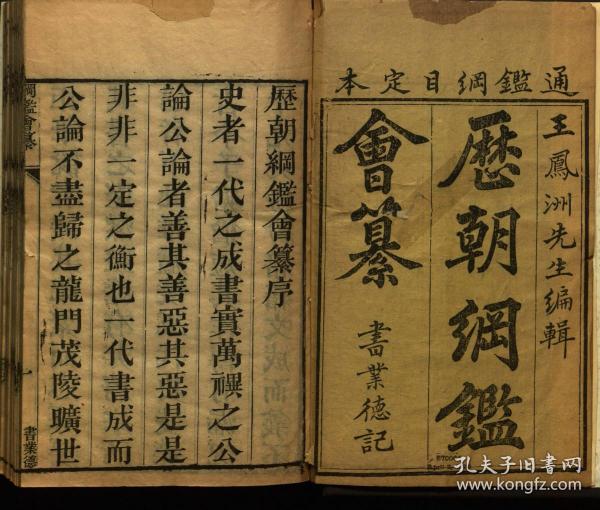 通鑑綱目定本
王鳳洲先生編輯
歷朝綱鑑
會纂
書業德記
歷朝綱鑑會纂序
史者一代之成書實萬禩之公
論公論者善其善惡其惡是是
非非一定之衡也一代書成而
公論不盡歸之龍門茂陵曠世
綱鑑會纂
一
書業德
孔夫子旧书网
www.kongfz.com